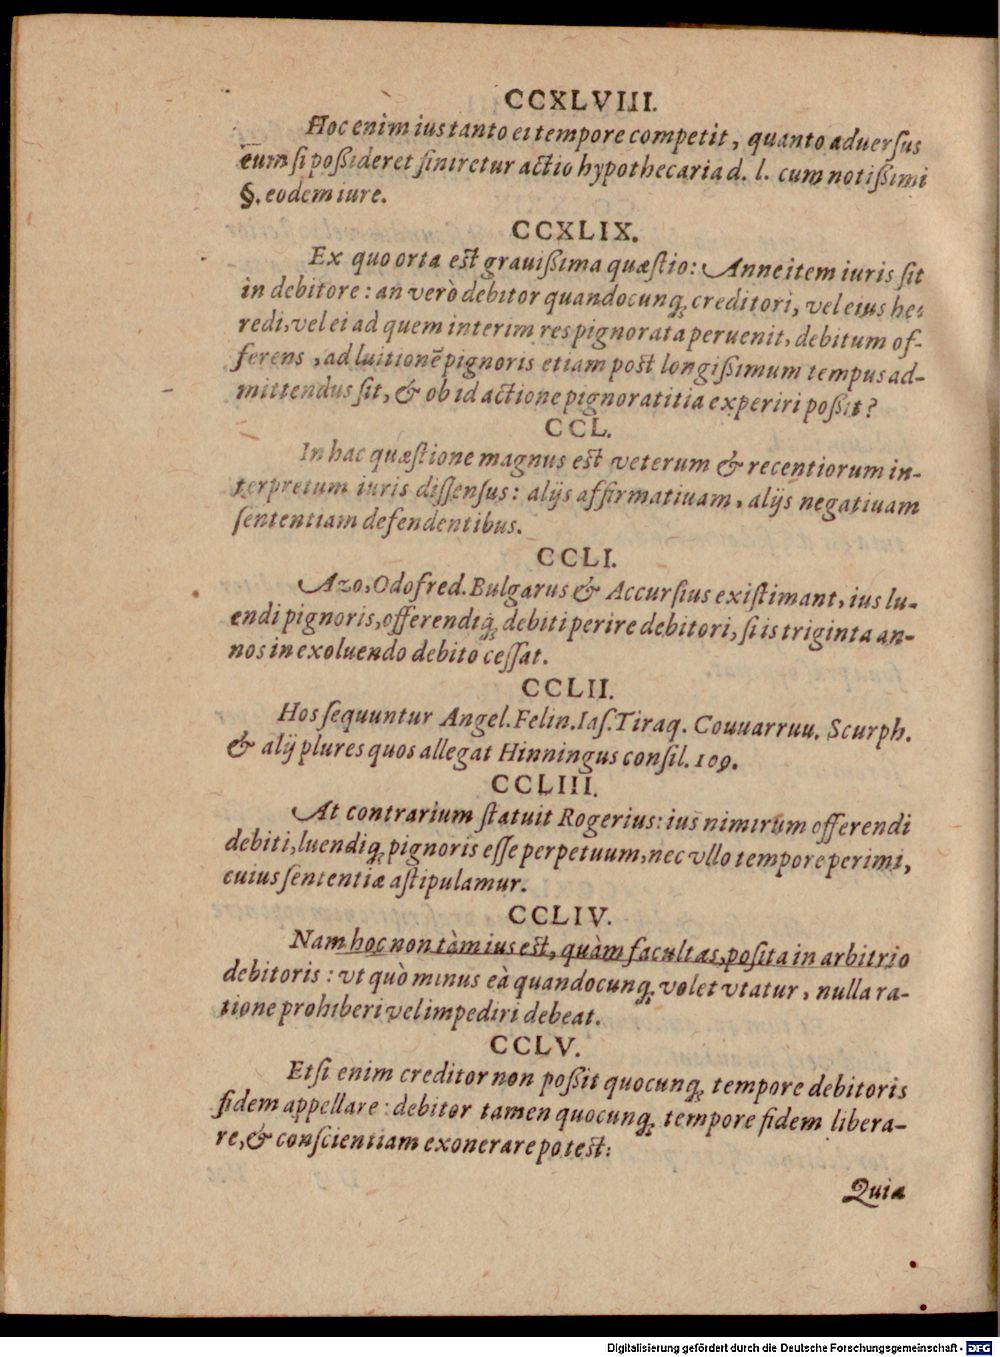 CCXLVIII.
Hoc enim ius tanto ei tempore competit, quanto aduersus
eum si poßideret finiretur actio hypothecaria d. l. cum notißimi
§. eodem iure.
CCXLIX.
Ex quo orta est grauißima quæstio: Anne item iuris sit
in debitore: an verò debitor quandocunq; creditori, vel eius he-
redi, vel ei ad quem interim res pignorata peruenit, debitum of-
ferens, ad luitionē pignoris etiam post longißimum tempus ad-
mittendus sit, & ob id actione pignoratitia experiri poßit?
CCL.
In hac quæstione magnus est veterum & recentiorum in-
terpretum iuris dissensus: alijs affirmatiuam, alijs negatiuam
sententiam defendentibus.
CCLI.
Azo, Odofred. Bulgarus & Accursius existimant, ius lu-
endi pignoris, offerendiq; debiti perire debitori, si is triginta an-
nos in exoluendo debito cessat.
CCLII.
Hos sequuntur Angel. Felin. Ias. Tiraq. Couuarruu. Scurph.
& alij plures quos allegat Hinningus consil. 109.
CCLIII.
At contrarium statuit Rogerius: ius nimirum offerendi
debiti, luendiq; pignoris esse perpetuum, nec vllo tempore perimi,
cuius sententiæ astipulamur.
CCLIV.
Nam hoc non tàm ius est, quàm facultas, posita in arbitrio
debitoris: vt quò minus eà quandocunq; volet vtatur, nulla ra-
tione prohiberi vel impediri debeat.
CCLV.
Etsi enim creditor non poßit quocunq; tempore debitoris
fidem appellare: debitor tamen quocunq; tempore fidem libera-
re, & conscientiam exonerare potest:
Quia
Digitalisierung gefördert durch die Deutsche Forschungsgemeinschaft - DFG